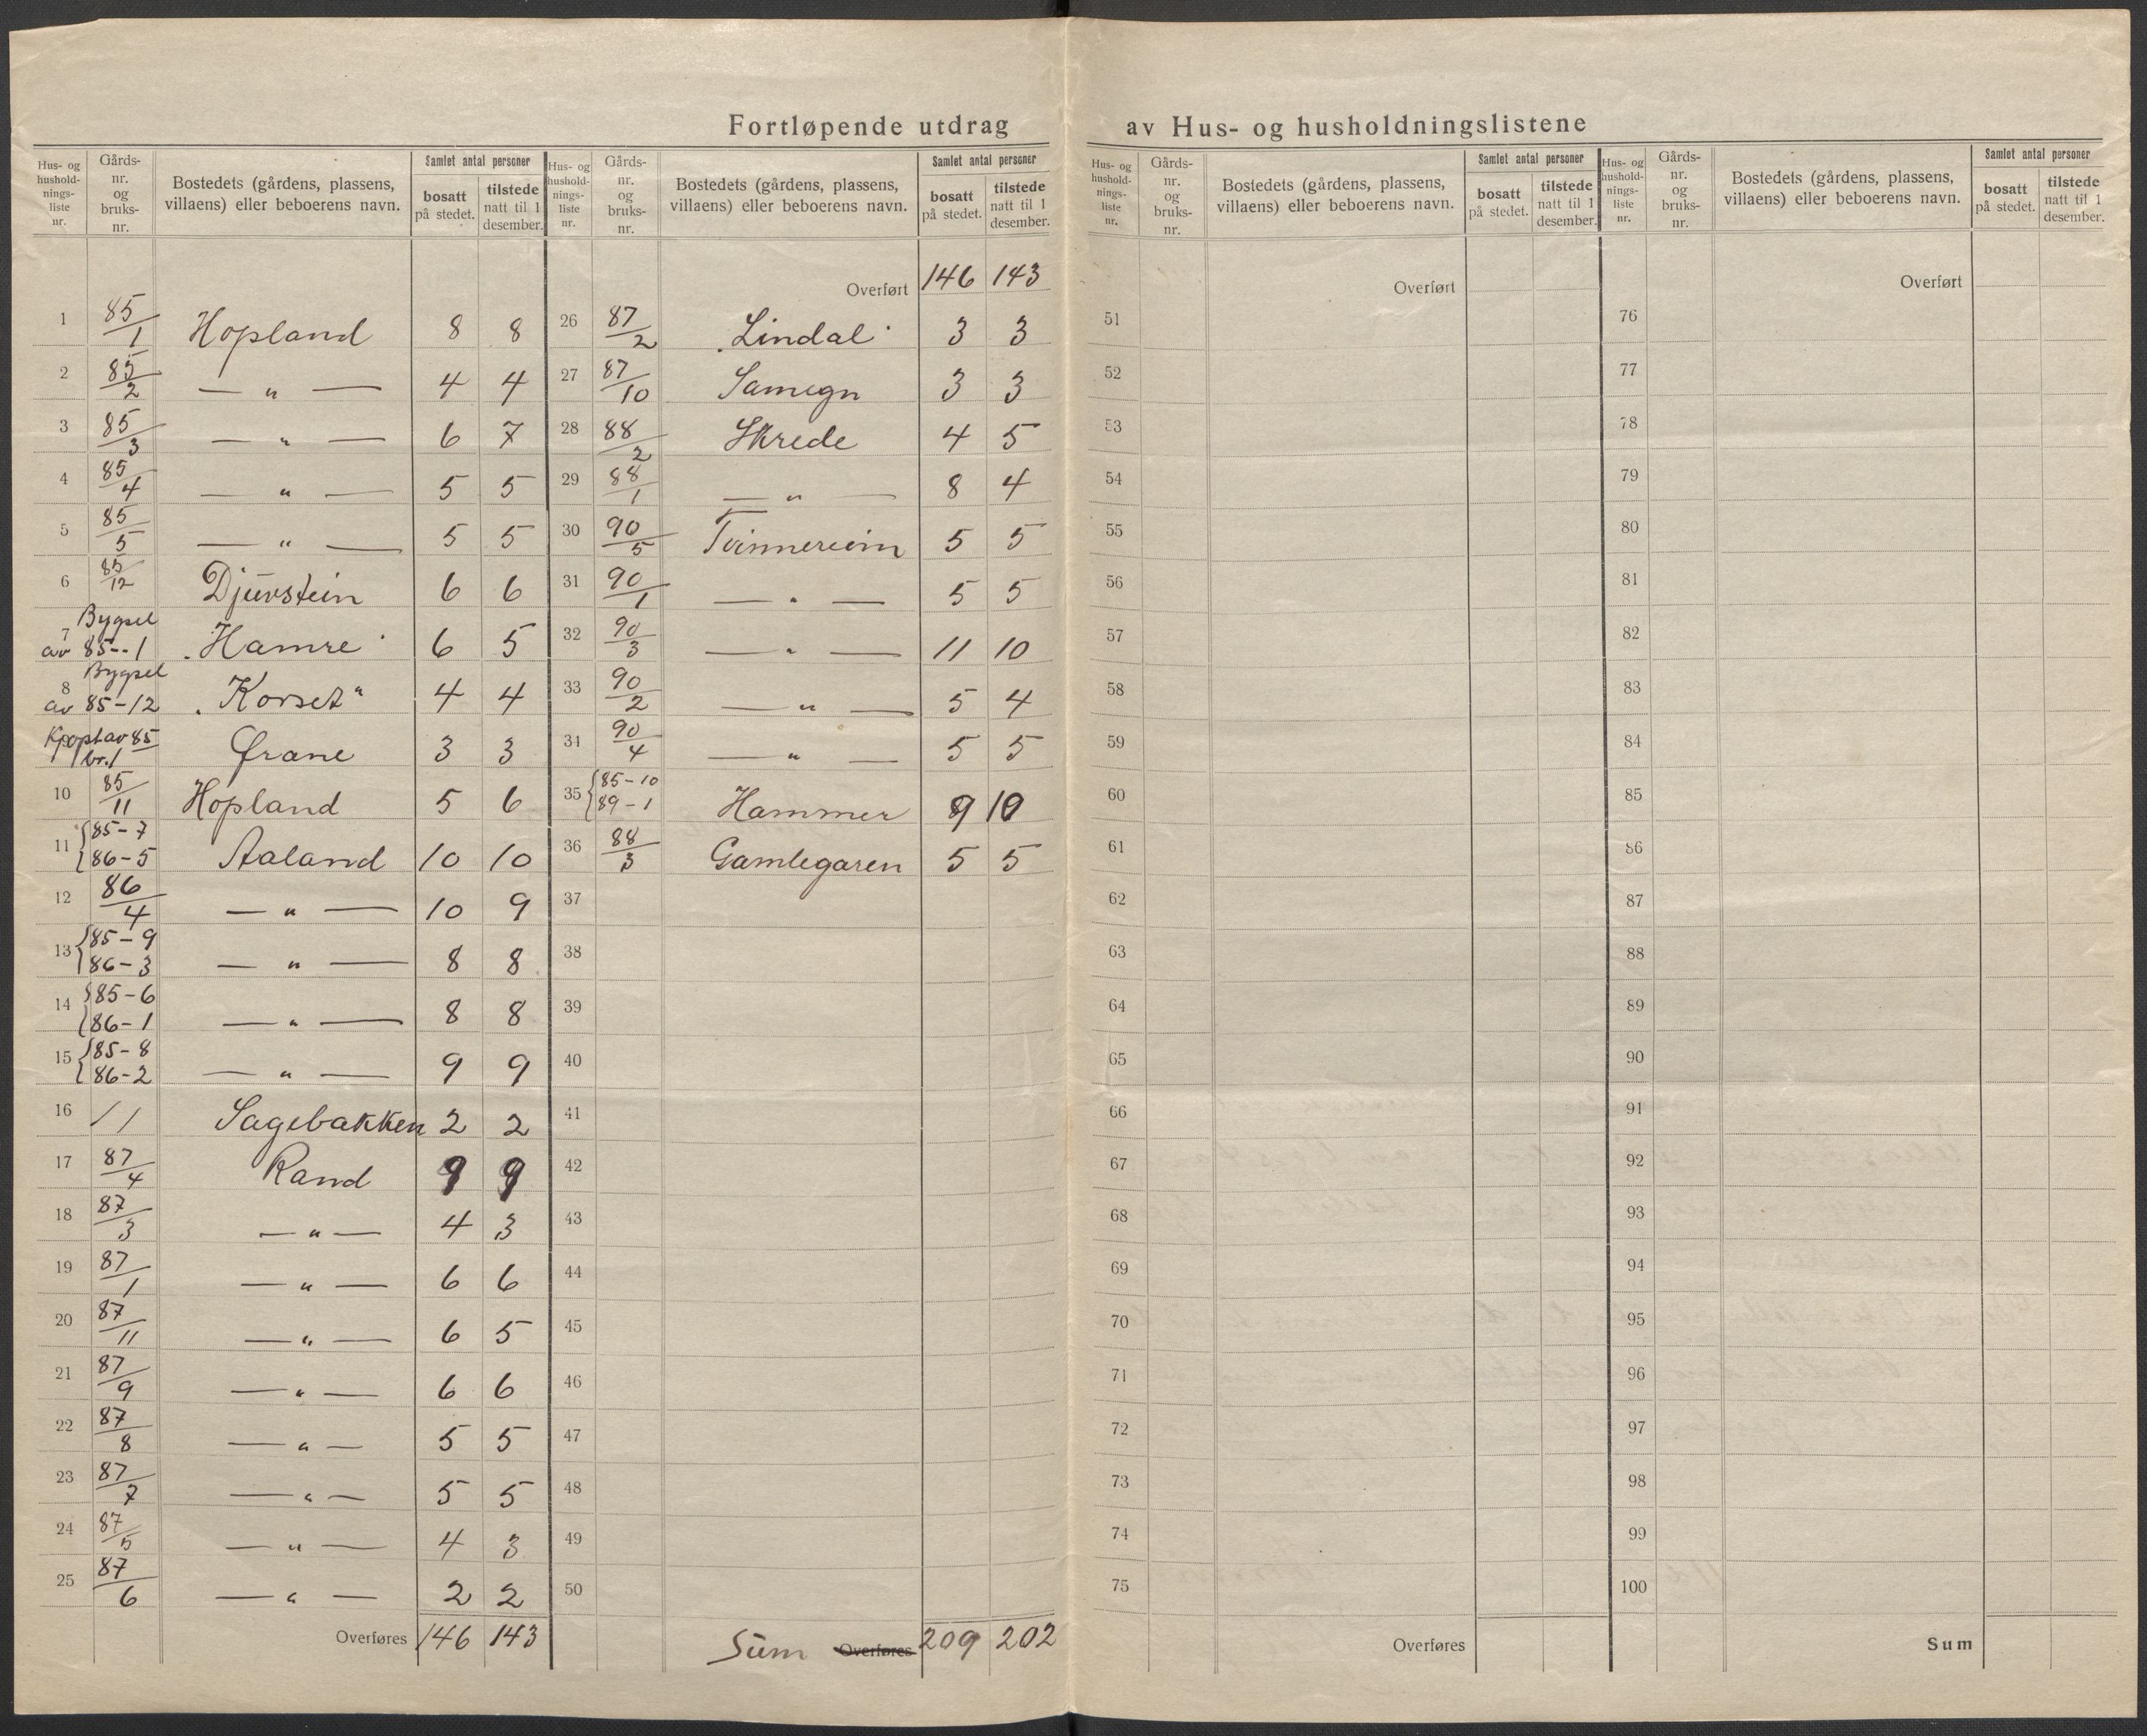 Fortløpende utdrag av Hus- og husholdningslistene
Hus- og hushold- nings- liste nr. | Gårds- nr. og bruks- nr. | Bostedets (gårdens, plassens, villaens) eller beboerens navn. | Samlet antal personer | bosatt på stedet. | tilstede natt til 1 desember.
1 85/1 Hopland 8 8
2 85/2 — " — 4 4
3 85/3 — " — 6 7
4 85/4 — " — 5 5
5 85/5 — " — 5 5
6 85/12 Djuvstein 6 6
7 Bygsel av 85--1 "Hamre" 6 5
8 Bygsel av 85-12 "Korset" 4 4
85 br. 1 Grane 3 3
10 85/11 Hopland 5 6
11 {85-7 86-5 Aaland 10 10
12 86/4 — " — 10 9
13 {85-9 86-3 — " — 8 8
14 {85-6 86-1 — " — 8 8
15 {85-8 86-2 — " — 9 9
16 / / Sagebakken 2 2
17 87/4 Rand 9 9
18 87/3 — " — 4 3
19 87/1 — " — 6 6
20 87/11 — " — 6 5
21 87/9 — " — 6 6
22 87/8 — " — 5 5
23 87/7 — " — 5 5
24 87/5 — " — 4 3
25 87/6 — " — 2 2
Overføres 146 143
Hus- og hushold- nings- liste nr. | Gårds- nr. og bruks- nr. | Bostedets (gårdens, plassens, villaens) eller beboerens navn. | Samlet antal personer | bosatt på stedet. | tilstede natt til 1 desember.
Overført 146 143
26 87/2 "Lindal" 3 3
27 87/10 Samegn 3 3
28 88/2 Skrede 4 5
29 88/1 — " — 8 4
30 90/5 Tvinnereim 5 5
31 90/1 — " — 5 5
32 90/3 — " — 11 10
33 90/2 — " — 5 4
34 90/4 — " — 5 5
35 {85-10 89-1 Hammer 9 10
36 88/3 Gamlegaren 5 5
37
38
39
40
41
42
43
44
45
46
47
48
49
50
Sum Overføres 209 202
Hus- og hushold- nings- liste nr. | Gårds- nr. og bruks- nr. | Bostedets (gårdens, plassens, villaens) eller beboerens navn. | Samlet antal personer | bosatt på stedet. | tilstede natt til 1 desember.
Overført
51
52
53
54
55
56
57
58
59
60
61
62
63
64
65
66
67
68
69
70
71
72
73
74
75
Overføres
Hus- og hushold- nings- liste nr. | Gårds- nr. og bruks- nr. | Bostedets (gårdens, plassens, villaens) eller beboerens navn. | Samlet antal personer | bosatt på stedet. | tilstede natt til 1 desember.
Overført
76
77
78
79
80
81
82
83
84
85
86
87
88
89
90
91
92
93
94
95
96
97
98
99
100
Sum